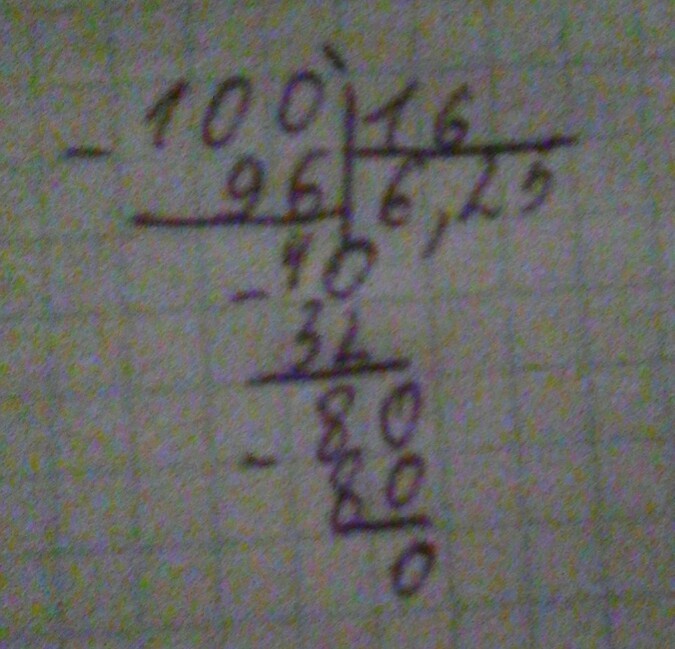 - 100 | 16
96 | 6,25
- 40
32
80
- 80
0